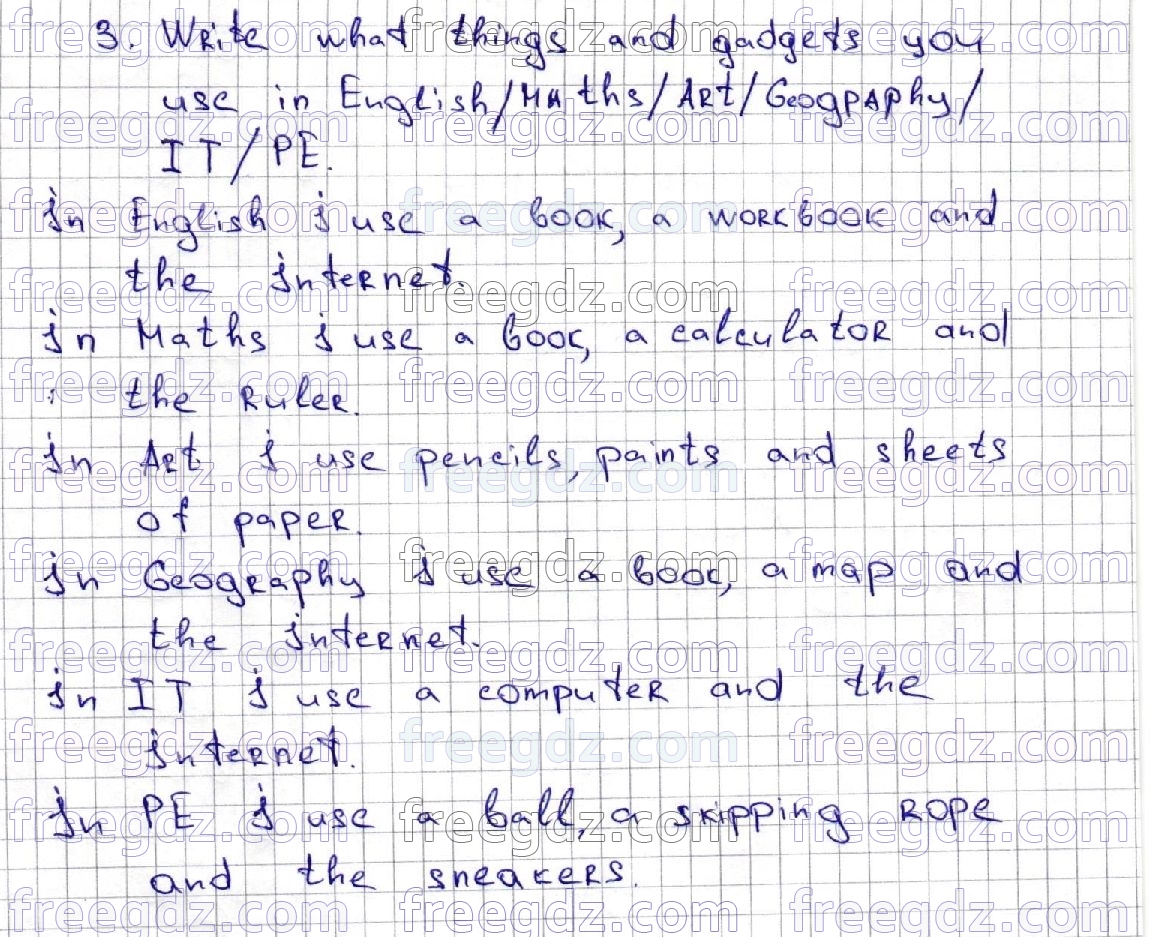 3. Write what things and gadgets you
use in English/Maths/Art/Geography/
IT/PE.
In English I use a book, a workbook and
the internet.
In Maths I use a book, a calculator and
the ruler.
In Art I use pencils, paints and sheets
of paper.
In Geography I use a book, a map and
the internet.
In IT I use a computer and the
internet.
In PE I use a ball, a skipping rope
and the sneakers.
freegdz.com